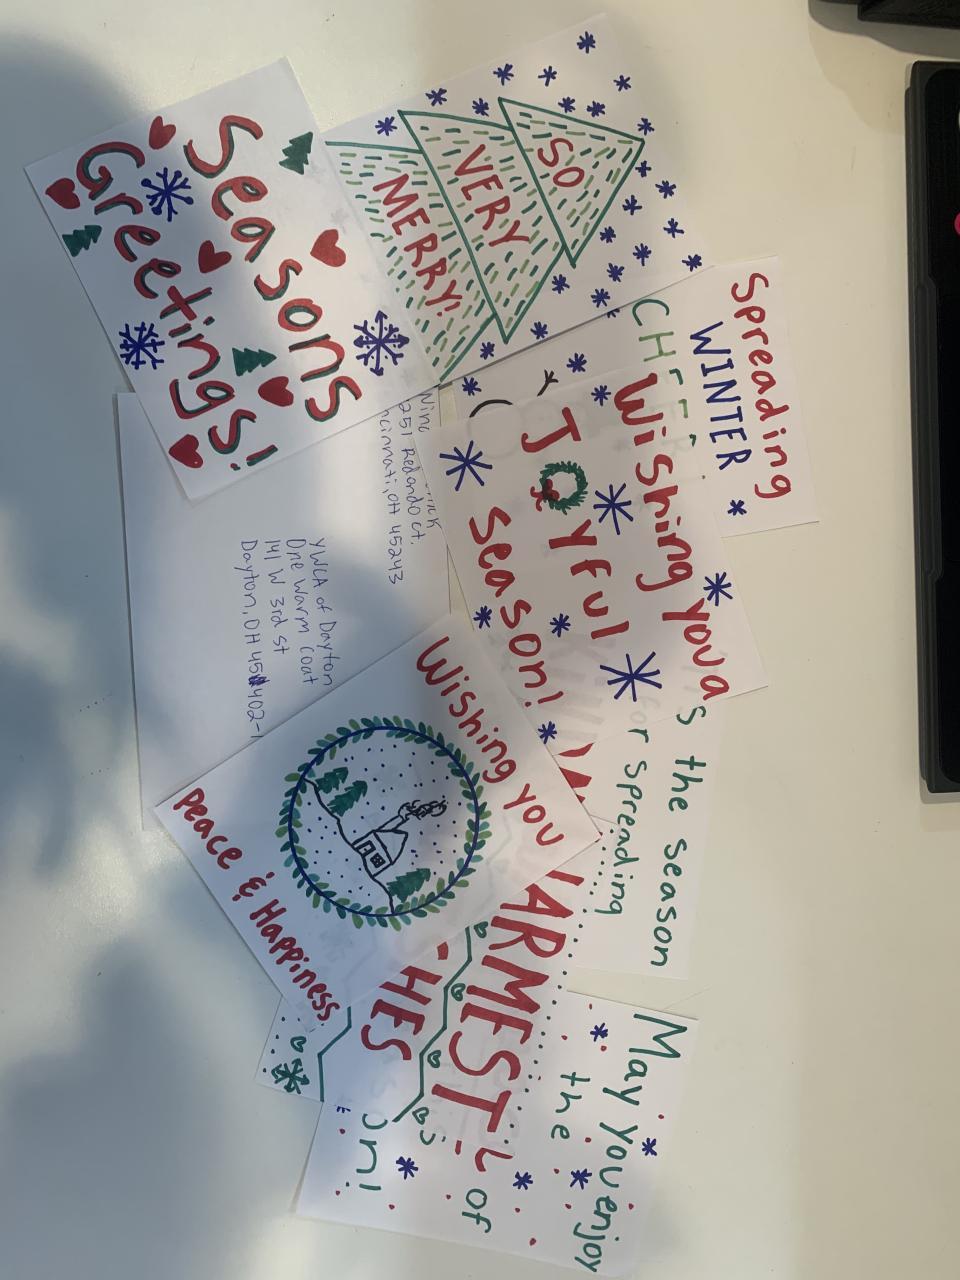 Seasons
Greetings!
SO
VERY
MERRY!
Spreading
WINTER
CHEER
Wishing you a
JOYful
Season!
251 Redondo Ct.
45243
YWCA of Dayton
One Warm Coat
141 W 3rd St
Dayton, OH 45402-1
the season
for spreading
Wishing you
Peace & Happiness
WARMEST
May you enjoy
the
of